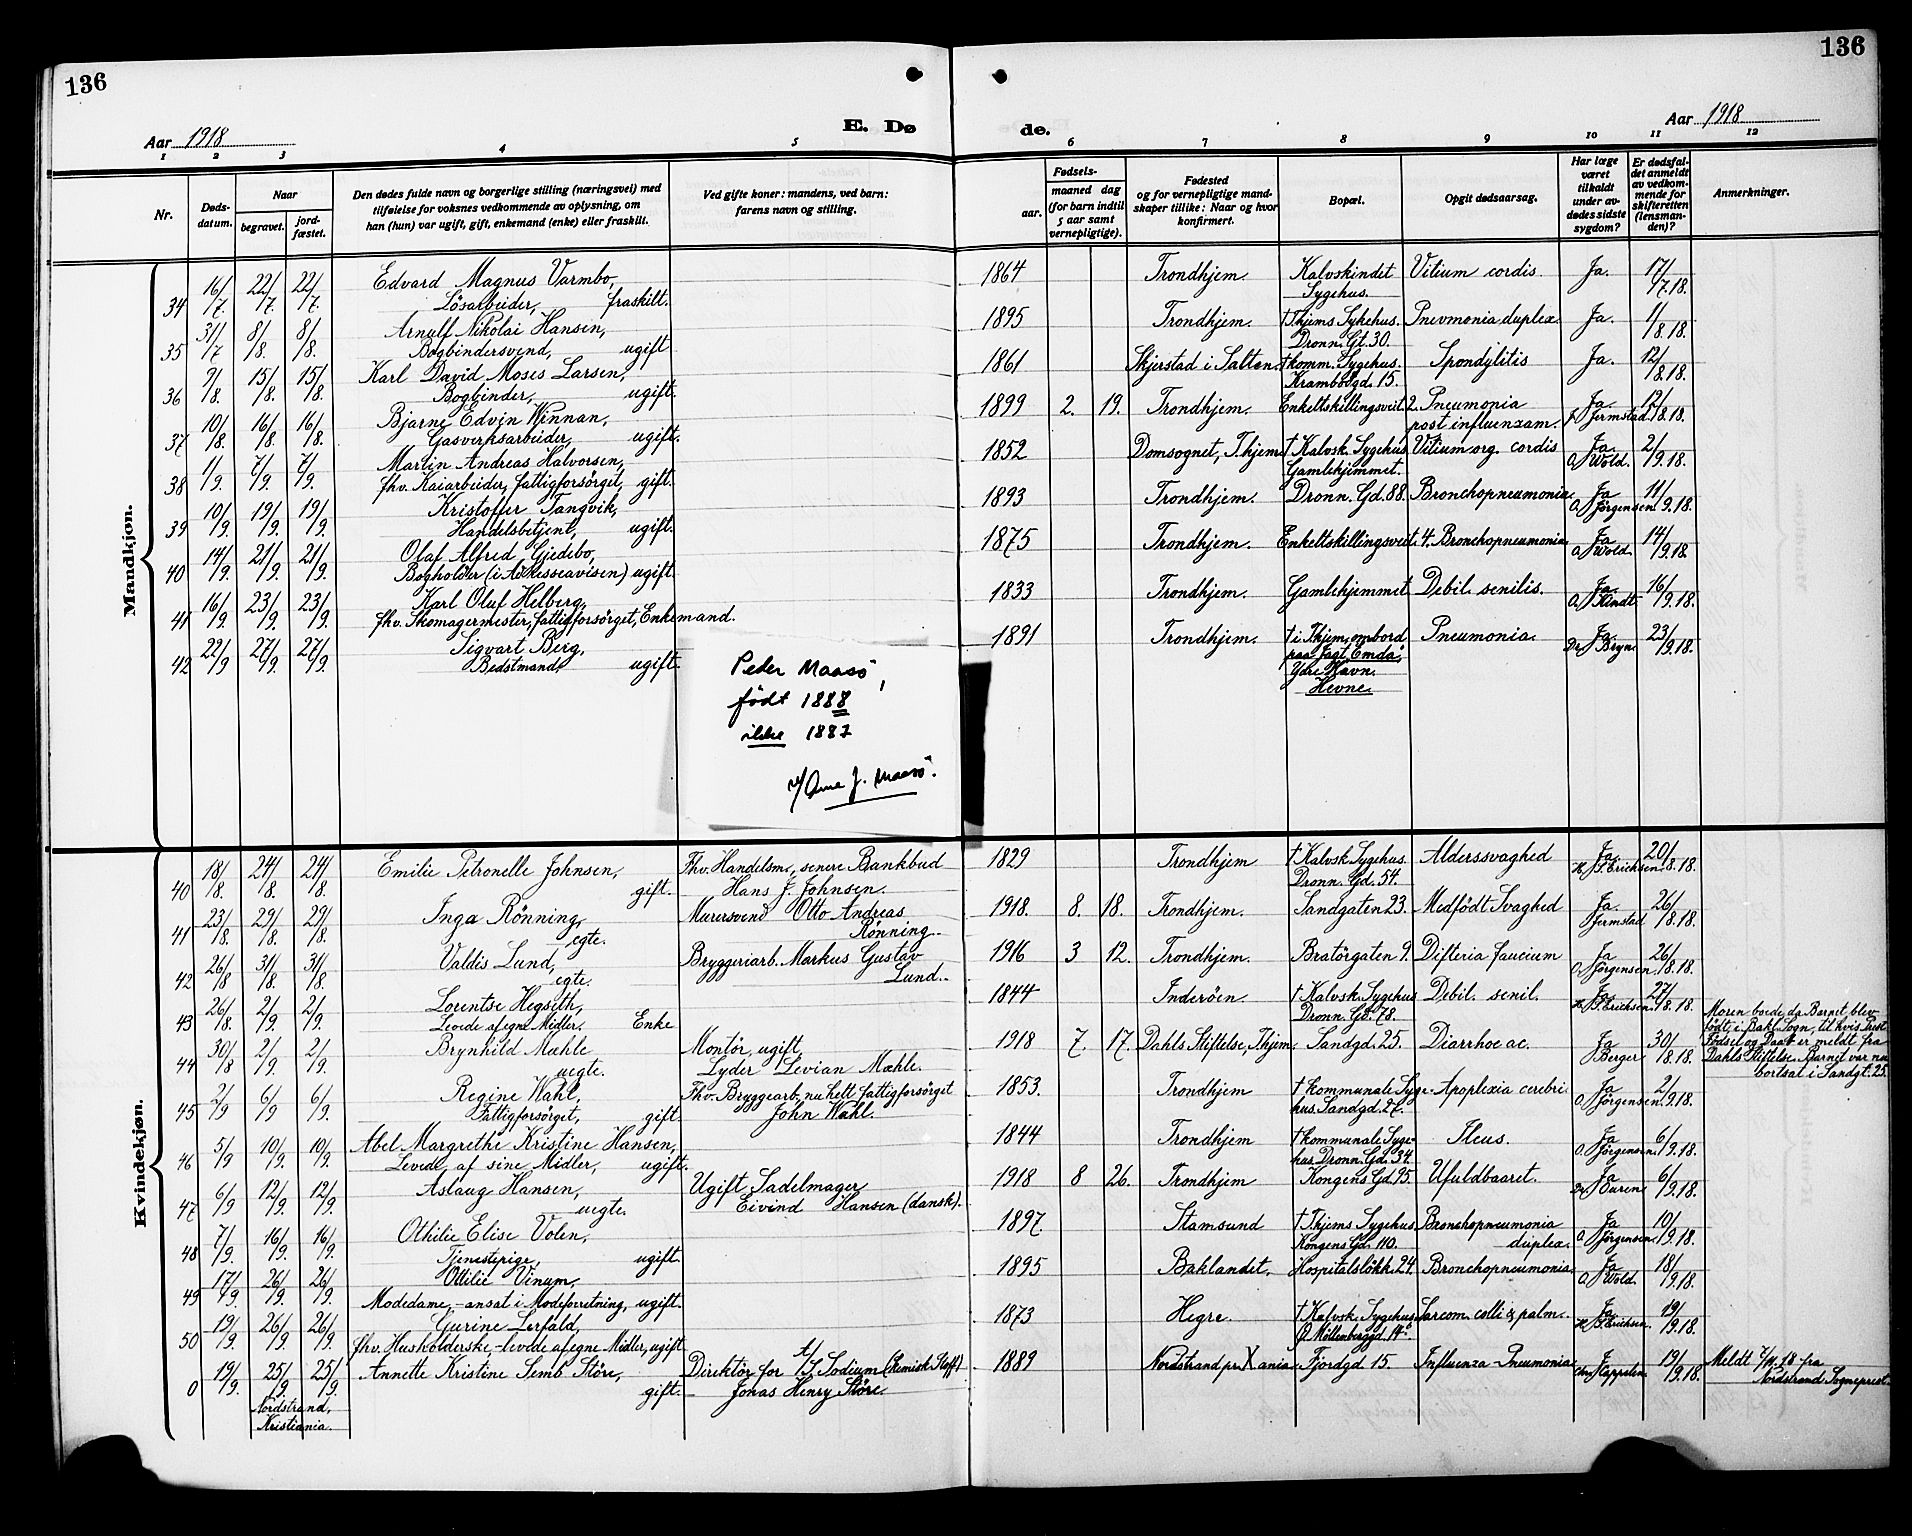 136
136
Aar 1918
E. Dø
de.
Aar 1918
1 2 3 4 5 6 7 8 9 10 11 12
Nr.
Døds-
datum.
Naar
begravet.
jord-
fæstet.
Den dødes fulde navn og borgerlige stilling (næringsvei) med
tilføielse for voksnes vedkommende av oplysning, om
han (hun) var ugift, gift, enkemand (enke) eller fraskilt.
Ved gifte koner: mandens, ved barn:
farens navn og stilling.
Fødsels-
aar.
maaned dag
(for barn indtil
5 aar samt
vernepligtige).
Fødested
og for vernepligtige mand-
skaper tillike: Naar og hvor
konfirmert.
Bopæl.
Opgit dødsaarsag.
Har læge
været
tilkaldt
under av-
dødes sidste
sygdom?
Er dødsfal-
det anmeldt
av vedkom-
mende for
skifteretten
(lensman-
den)?
Anmerkninger.
Mandkjøn.
34 16/7. 22/7. 22/7. Edvard Magnus Varmbo, 1864 Trondhjem. Kalvskindet Vitium cordis. Ja. 17/7.18.
Lösarbeider, fraskilt. Sygehus.
35 31/7 8/8. 8/8. Arnulf Nikolai Hansen, 1895 Trondhjem. † Thjems Sykehus. Pnevmonia duplex. Ja. 1/8.18.
Bogbindersvend, ugift Dronn. Gt. 30.
36 9/8. 15/8. 15/8. Karl David Moses Larsen, 1861 Skjerstad i Salten. † komm. Sygehus. Spondylitis Ja. 12/8.18.
Bogbinder, ugift. Krambodgd. 15.
37 10/8. 16/8. 16/8. Bjarne Edvin Winnan, 1899 2. 19. Trondhjem. Enkeltskillingsveit. 2. Pneumonia Ja. 12/8.18.
Gasverksarbeider, ugift. post influenzam. Jermstad.
38 1/9. 7/9. 7/9. Martin Andreas Halvorsen, 1852 Domsognet, T.hjem † Kalvsk. Sygehus Vitium org. cordis Ja. 2/9.18.
fhv. Kaiarbeider, fattigforsörget, gift. Gamlehjemmet. O. Wold.
39 10/9. 19/9. 19/9. Kristoffer Tangvik, 1893 Trondhjem. Dronn. Gd. 88. Bronchopneumonia. Ja 11/9.18.
Handelsbetjent, ugift. O. Jörgensen.
40 14/9. 21/9. 21/9. Olaf Alfred Gjedebo, 1875 Trondhjem. Enkeltskillingsveit. 4. Bronchopneumonia. Ja 14/9.18.
Bogholder (i Adresseavisen) ugift. O. Wold.
41 16/9. 23/9. 23/9. Karl Oluf Helberg, 1833 Trondhjem. Gamlehjemmet Debil. senilis. Ja. 16/9.18.
fhv. Skomagermester, fattigforsörget, Enkemand. O. Kindt
42 22/9 27/9. 27/9. Sigvart Berg, 1891 Trondhjem. † i Thjem, ombord Pneumonia. Ja. 23/9.18.
Bedstmand, ugift. paa Jagt „Emda", Dr. Bryn.
Ydre Havn.
Hevne.
Peder Maasö,
födt 1888
ikke 1887
v/ Arne J. Maasö.
Kvindekjøn.
40 18/8. 24/8. 24/8. Emilie Petronelle Johnsen, Fhv. Handelsm., senere Bankbud 1829 Trondhjem † Kalvsk. Sygehus. Alderssvaghed Ja. 20/8.18.
gift. Hans J. Johnsen. Dronn. Gd. 54. H. B. Erichsen.
41 23/8. 29/8. 29/8. Inga Rönning, Murersvend Otto Andreas 1918. 8. 18. Trondhjem. Sandgaten 23. Medfödt Svaghed Ja. 26/8.18.
egte. Rönning. Jermstad
42 26/8 31/8. 31/8. Valdis Lund, Bryggeriarb. Markus Gustav 1916 3 12. Trondhjem. Bratörgaten 9. Difteria faucium Ja 26/8.18.
egte. Lund. O. Jörgensen.
43 26/8. 2/9. 2/9. Lorentse Hegseth, 1844 Inderöen. † Kalvsk. Sygehus Debil. senil. Ja 27/8.18.
Levede af egne Midler. Enke Dronn. Gd. 78. H. B. Erichsen.
44 30/8 2/9. 2/9. Brynhild Mæhle Montör, ugift 1918 7. 17. Dahls Stiftelse, T.hjem. Sandgd. 25. Diarrhoe ac. Ja 30/8.18.
uegte. Lyder Levian Mæhle. Berger
Moren boede da Barnet blev
födt, i Bakl. Sogn, til hvis Prest
Födsel og Daab er meldt, fra
Dahls Stiftelse. Barnet var nu
bortsat i Sandgt. 25.
45 2/9 6/9 6/9. Regine Wahl, Fhv. Bryggearb., nu helt fattigforsörget 1853. Trondhjem † kommunale Syge- Apoplexia cerebri. Ja 2/9.18.
Fattigforsörget, gift. John Wahl. hus. Sandgd. 27. O. Jörgensen.
46 5/9 10/9. 10/9. Abel Margrethe Kristine Hansen, 1844 Trondhjem † kommunale Syge- Ileus. Ja 6/9.18.
Levede af sine Midler, ugift. hus. Dronn. Gd. 34. O. Jörgensen.
47 6/9 12/9. 12/9. Aslaug Hansen, Ugift Sadelmager 1918 8 26. Trondhjem Kongens Gd. 95. Ufuldbaaret. Ja 6/9.18.
uegte. Eivind Hansen (dansk). Dr. Ouren.
48 7/9. 16/9. 16/9. Othilie Elise Volen, 1897. Stamsund † Thjems Sygehus. Bronchopneumonia Ja 10/9.18.
Tjenestepige, ugift. Kongens Gd. 110. duplex. O. Jörgensen.
49 17/9. 26/9. 26/9. Ottilie Vinum, 1895 Baklandet. Hospitalslökk. 24. Bronchopneumonia. Ja 18/9.18.
Modedame, - ansat i Modeforretning, ugift. O. Wold.
50 19/9. 26/9. 26/9. Gurine Lerfald, 1873 Hegre. † Kalvsk. Sygehus. Sarcom. colli & palm. Ja. 19/9.18.
fhv. Husholderske, - levede af egne Midler, ugift. Ö. Möllenberggd. 14. H. B. Erichsen.
0 19/9. 25/9. 25/9. Annette Kristine Semb Störe, Direktör for A/S Sodium (Kemisk Stoff) 1889 Nordstrand pr. Xania. Fjordgd 15. Influenza-Pneumonia Ja 19/9.18. Meldt 7/11.18 fra
gift. Jonas Henry Störe Chr. Kappelen Nordstrand Sogneprest.
Nordstrand,
Kristiania.